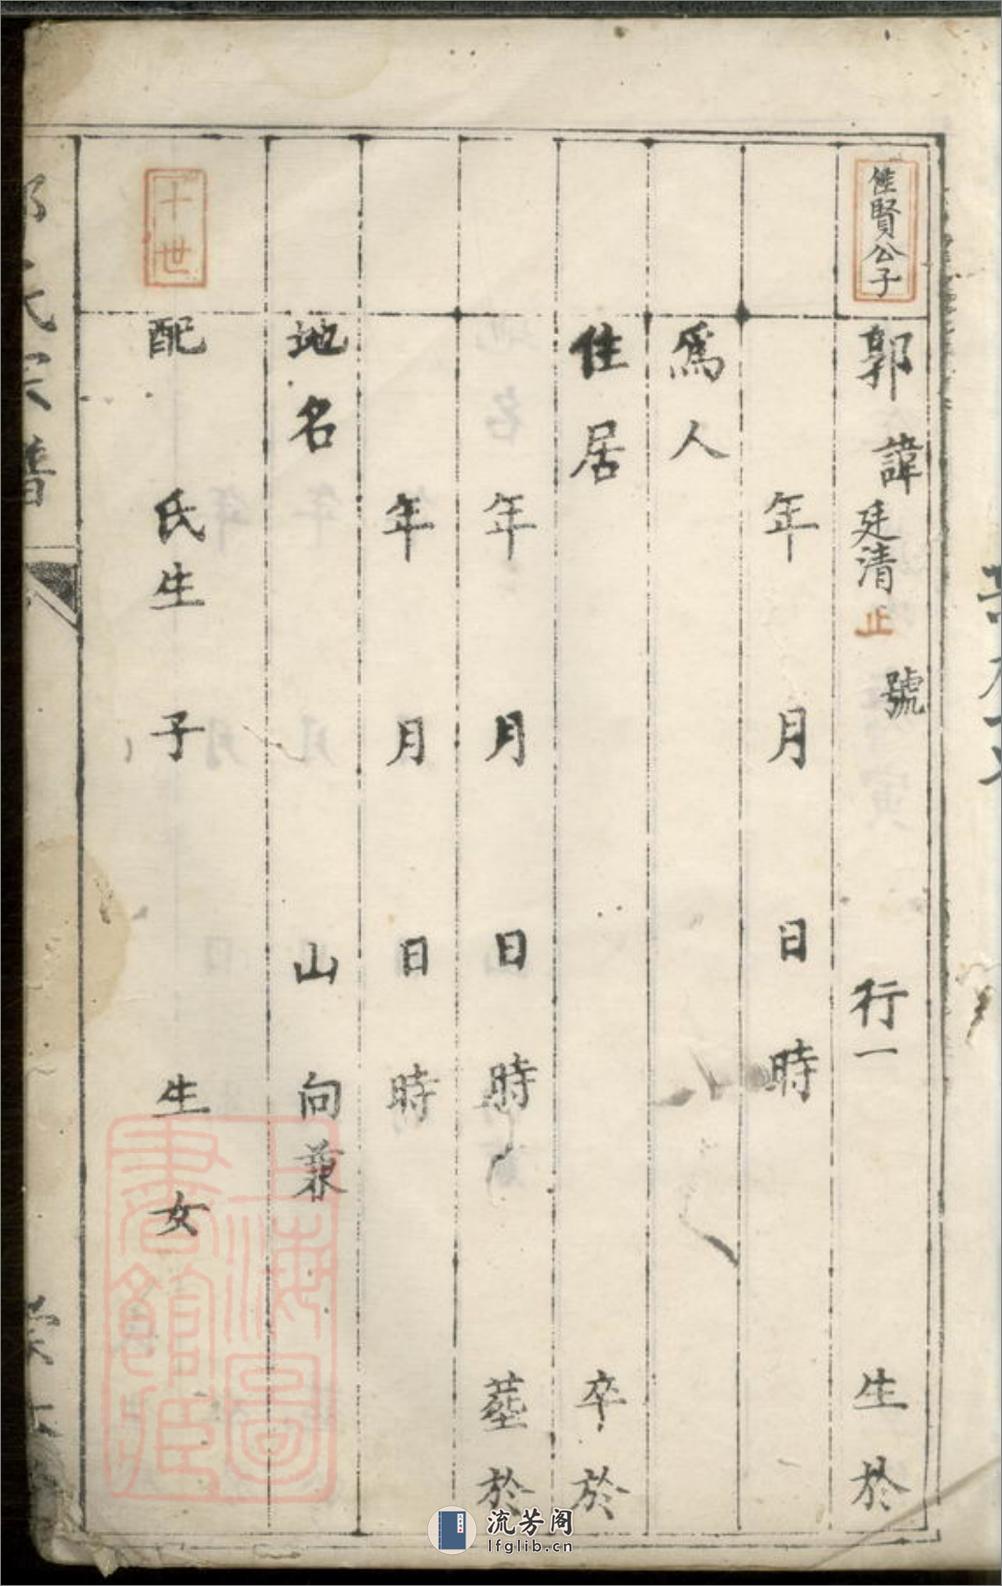 賢公子
郭 諱廷清止 號 行一 生於
年 月 日 時
爲人
住居 卒於
年 月 日 時 葬於
年 月 日 時
地名 山 向 兼
十世
配 氏生 子 生 女
氏宗譜
上海圖書館藏
流芳阁
lfglib.cn